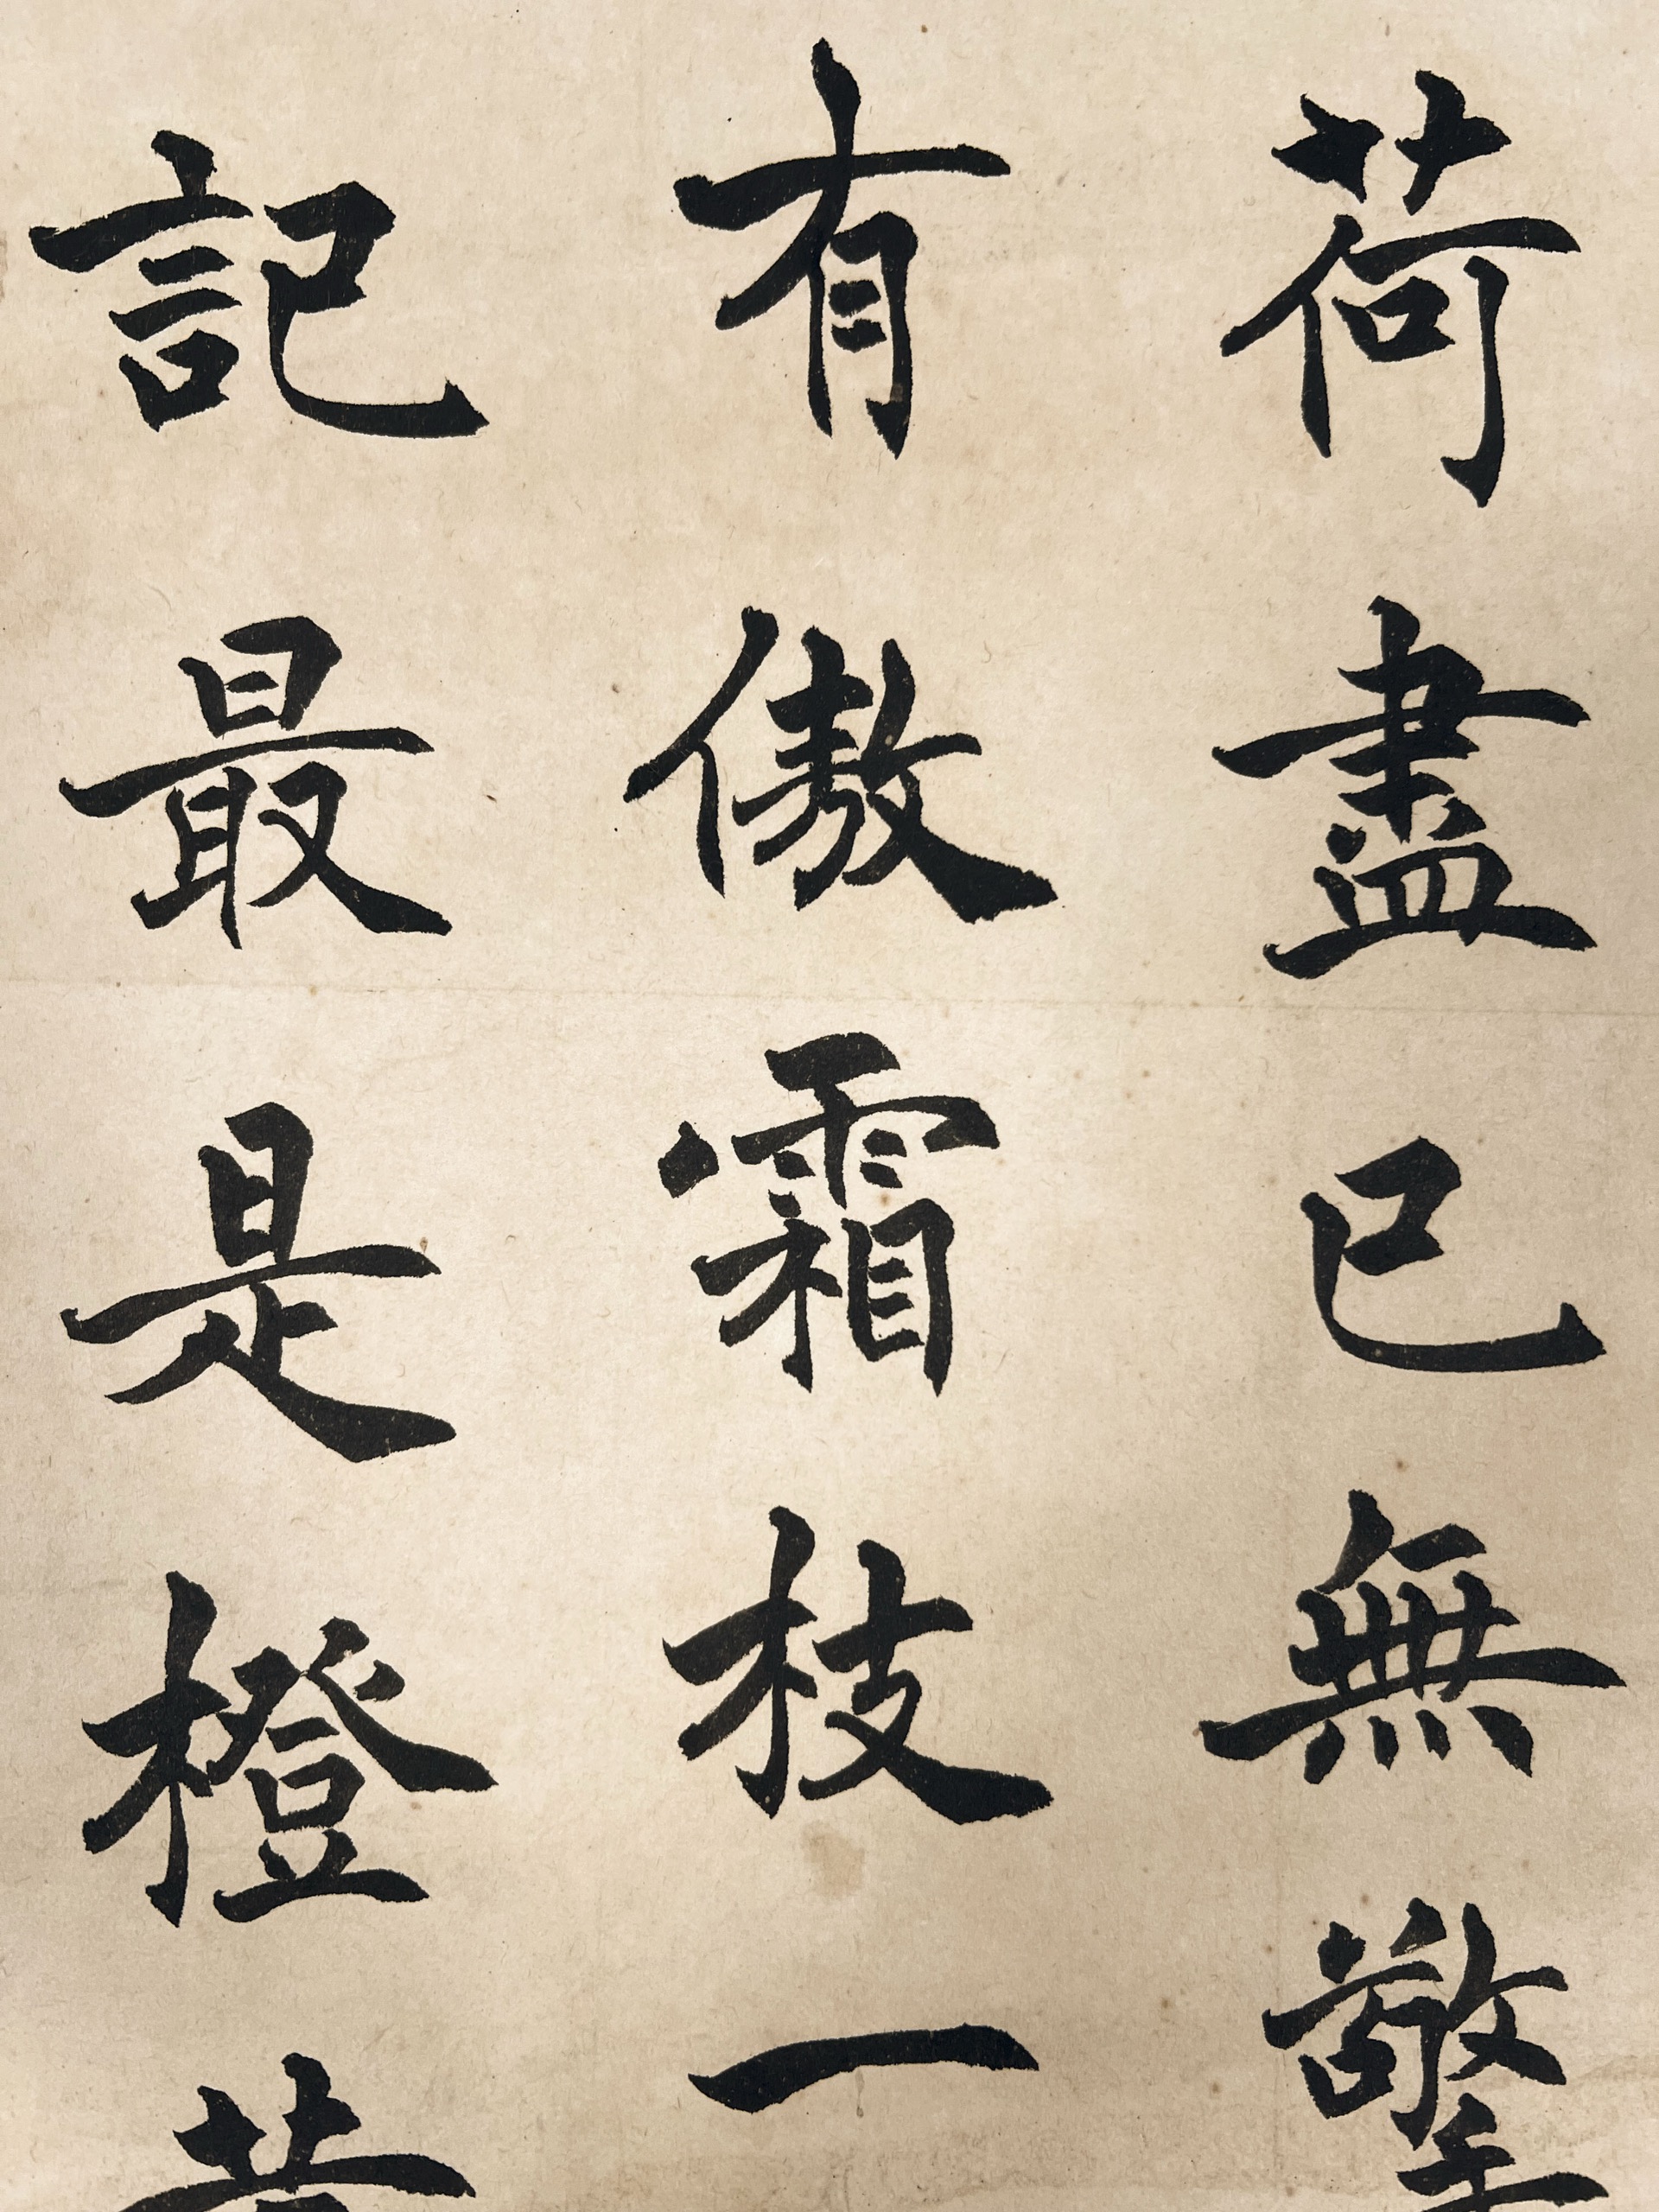 荷盡已無擎
有傲霜枝一
記最是橙黄